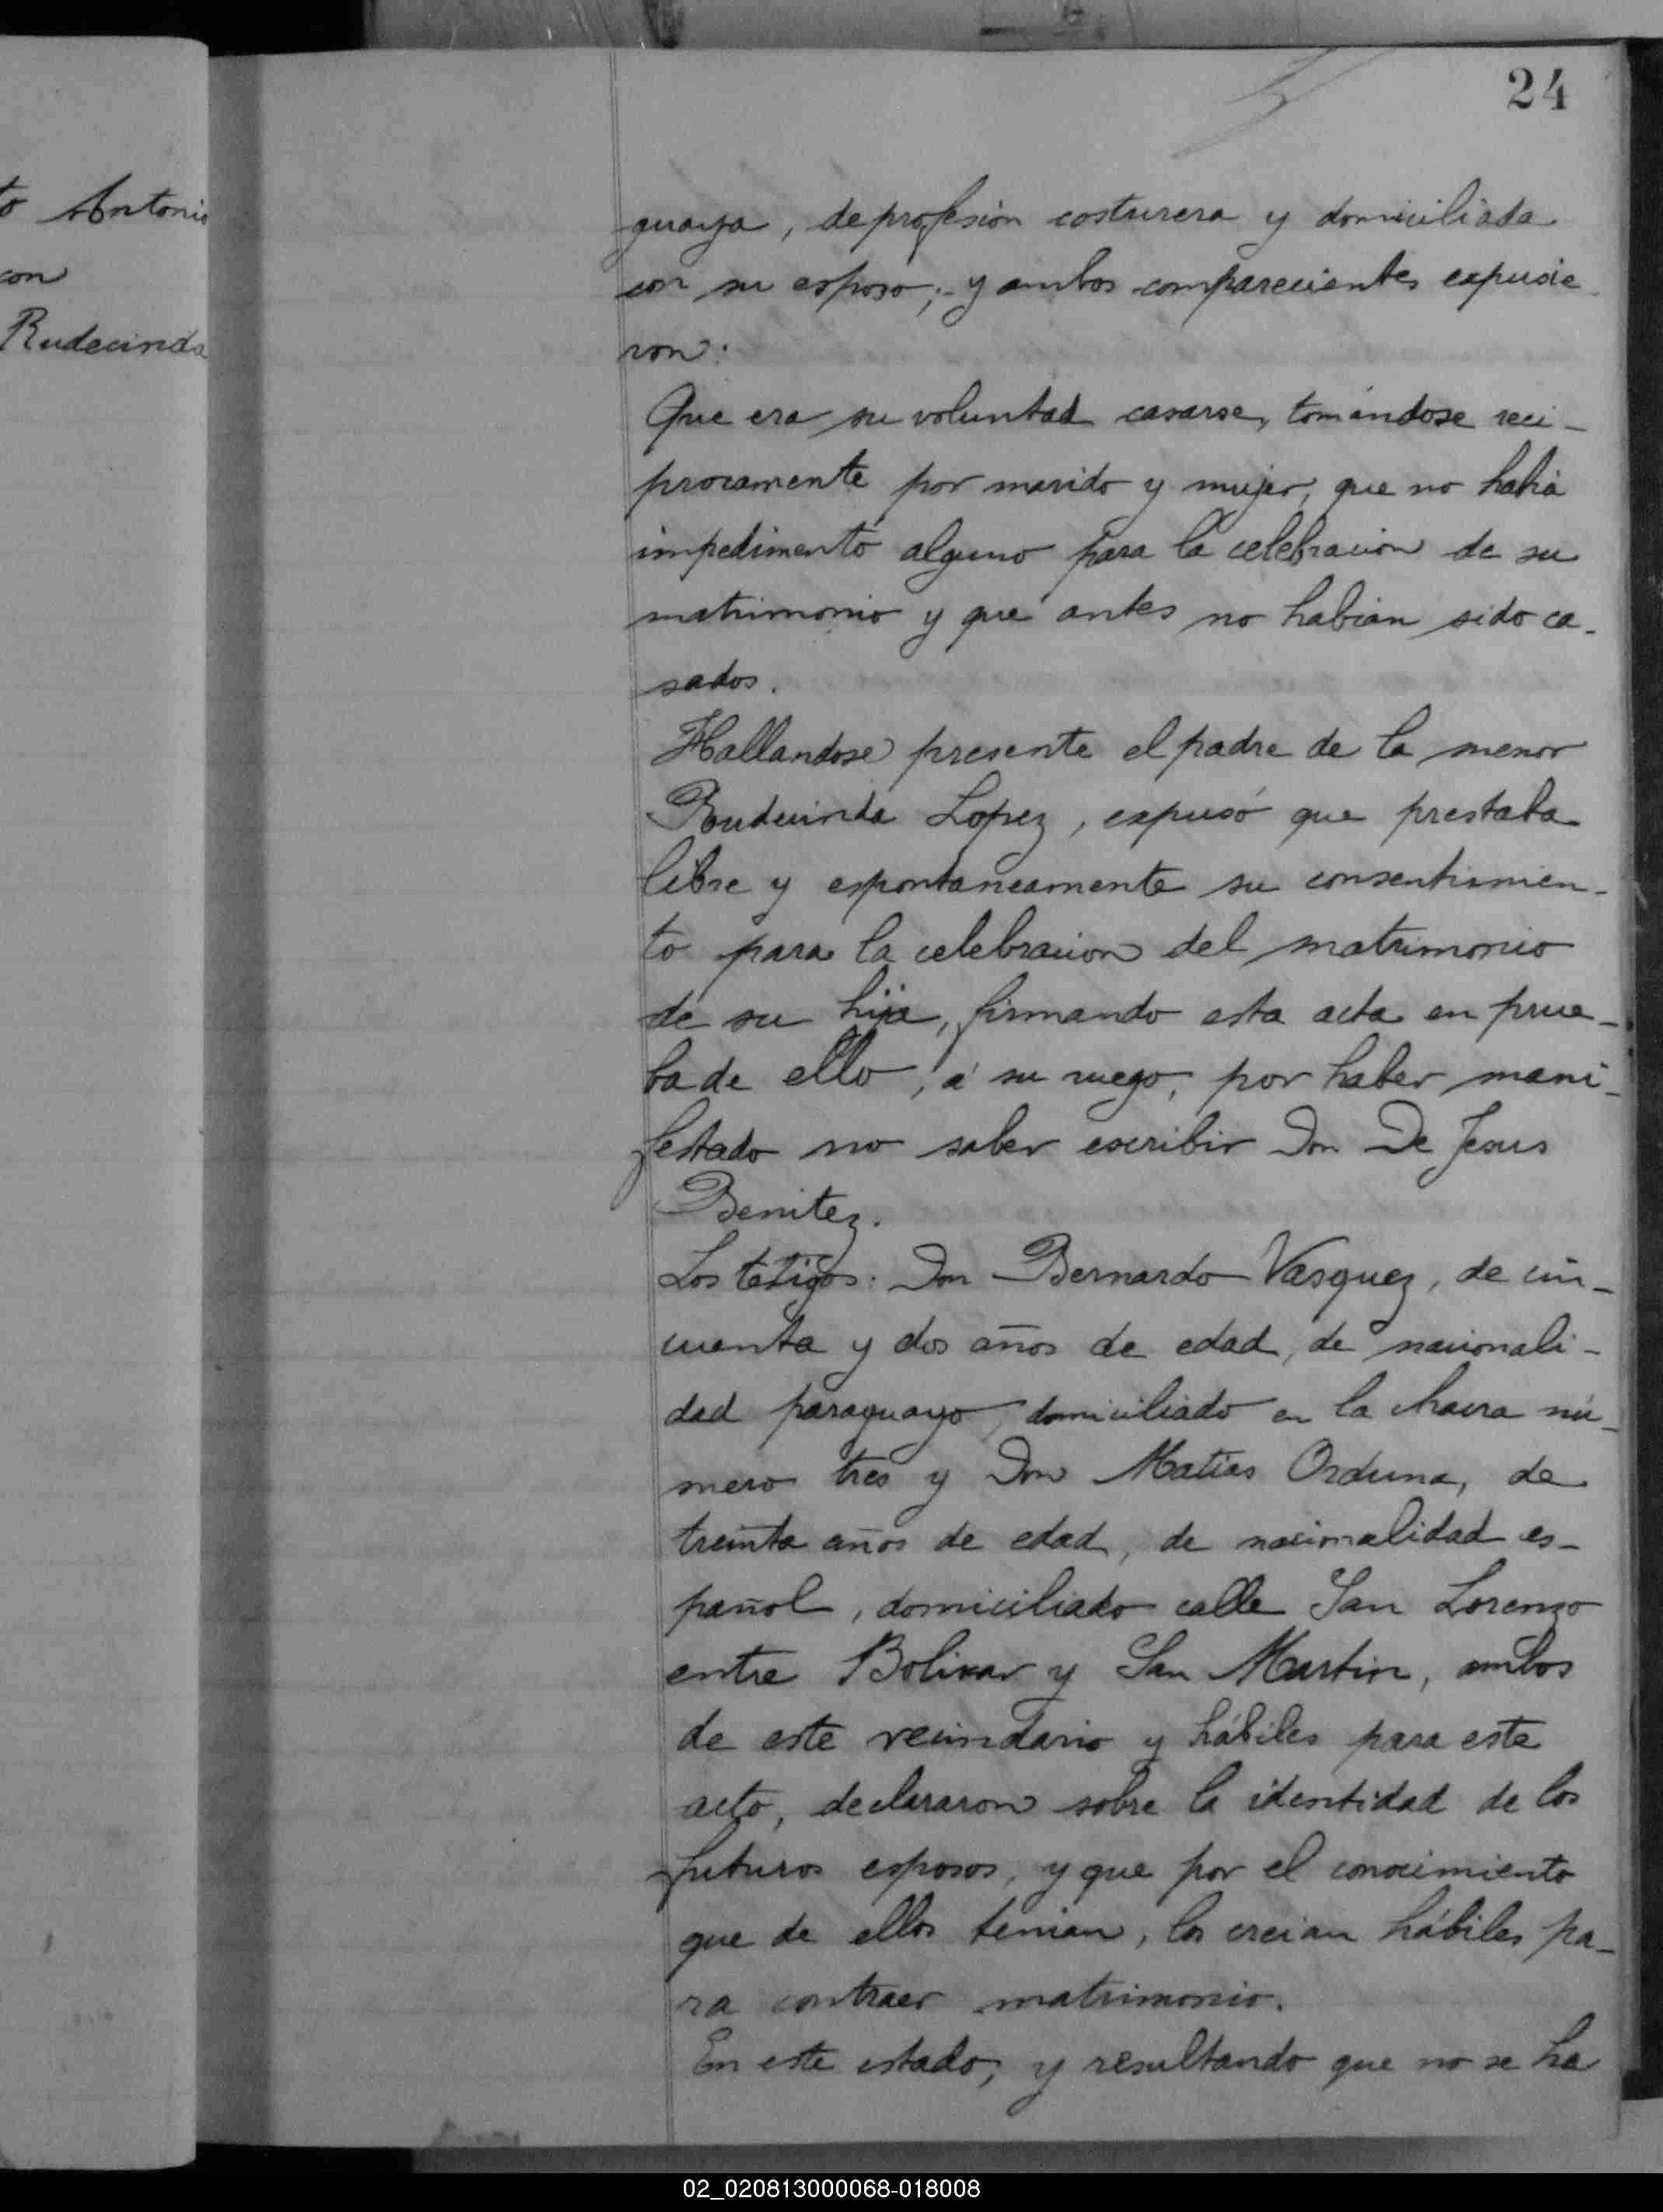 24
to Antonio
con
Rudecinda
guaya, de profesión costurera y domiciliada
con su esposo;- y ambos comparecientes expusie-
ron:
Que era su voluntad casarse, tomándose reci-
procamente por marido y mujer, que no habia
impedimento alguno para la celebracion de su
matrimonio y que antes no habian sido ca-
sados.
Hallandose presente el padre de la menor
Rudecinda Lopez, expusó que prestaba
libre y espontaneamente su consentimien-
to para la celebracion del matrimonio
de su hija, firmando esta acta en prue-
ba de ello, á su ruego, por haber mani-
festado no saber escribir Don De Jesus
Benitez.
Los tetigos: Don Bernardo Vasquez, de cin-
cuenta y dos años de edad, de nacionali-
dad paraguayo, domiciliado en la chacra nú-
mero tres y Don Matias Orduna, de
treinta años de edad, de nacionalidad es-
pañol, domiciliado calle San Lorenzo
entre Bolivar y San Martin, ambos
de este vecindario y hábiles para este
acto, declararon sobre la identidad de los
futuros esposos, y que por el conocimiento
que de ellos tenian, los creian hábiles pa-
ra contraer matrimonio.
En este estado, y resultando que no se ha
02_020813000068-018008